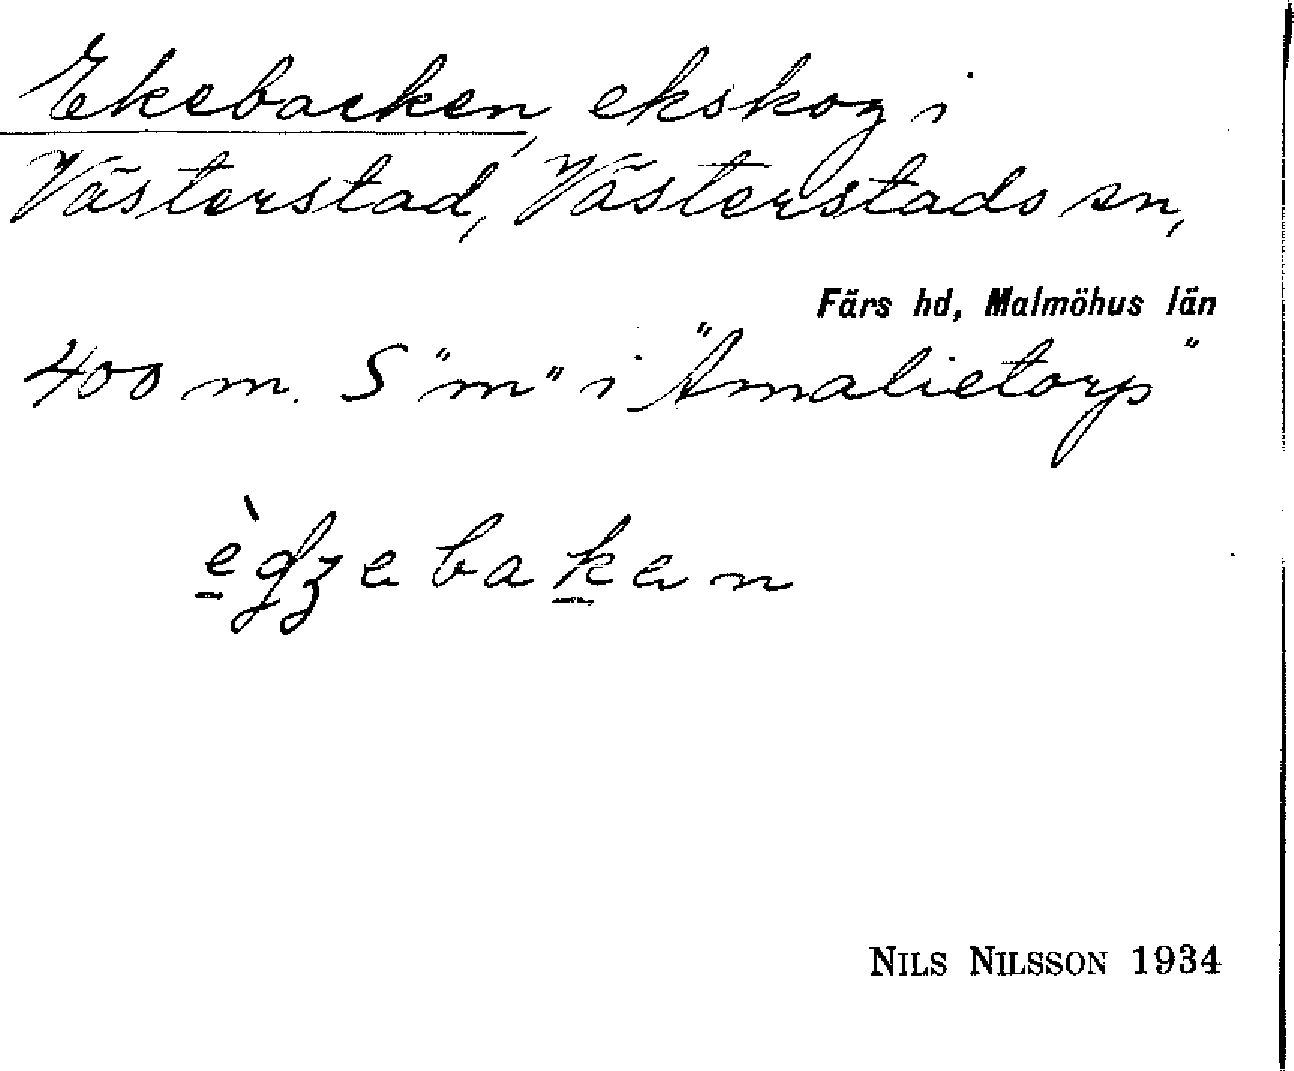 Ekebacken, ekskog i
Västerstad, Västerstads sn,
Färs hd, Malmöhus län
400 m. S "m" i "Amalietorp"
NILS NILSSON 1934